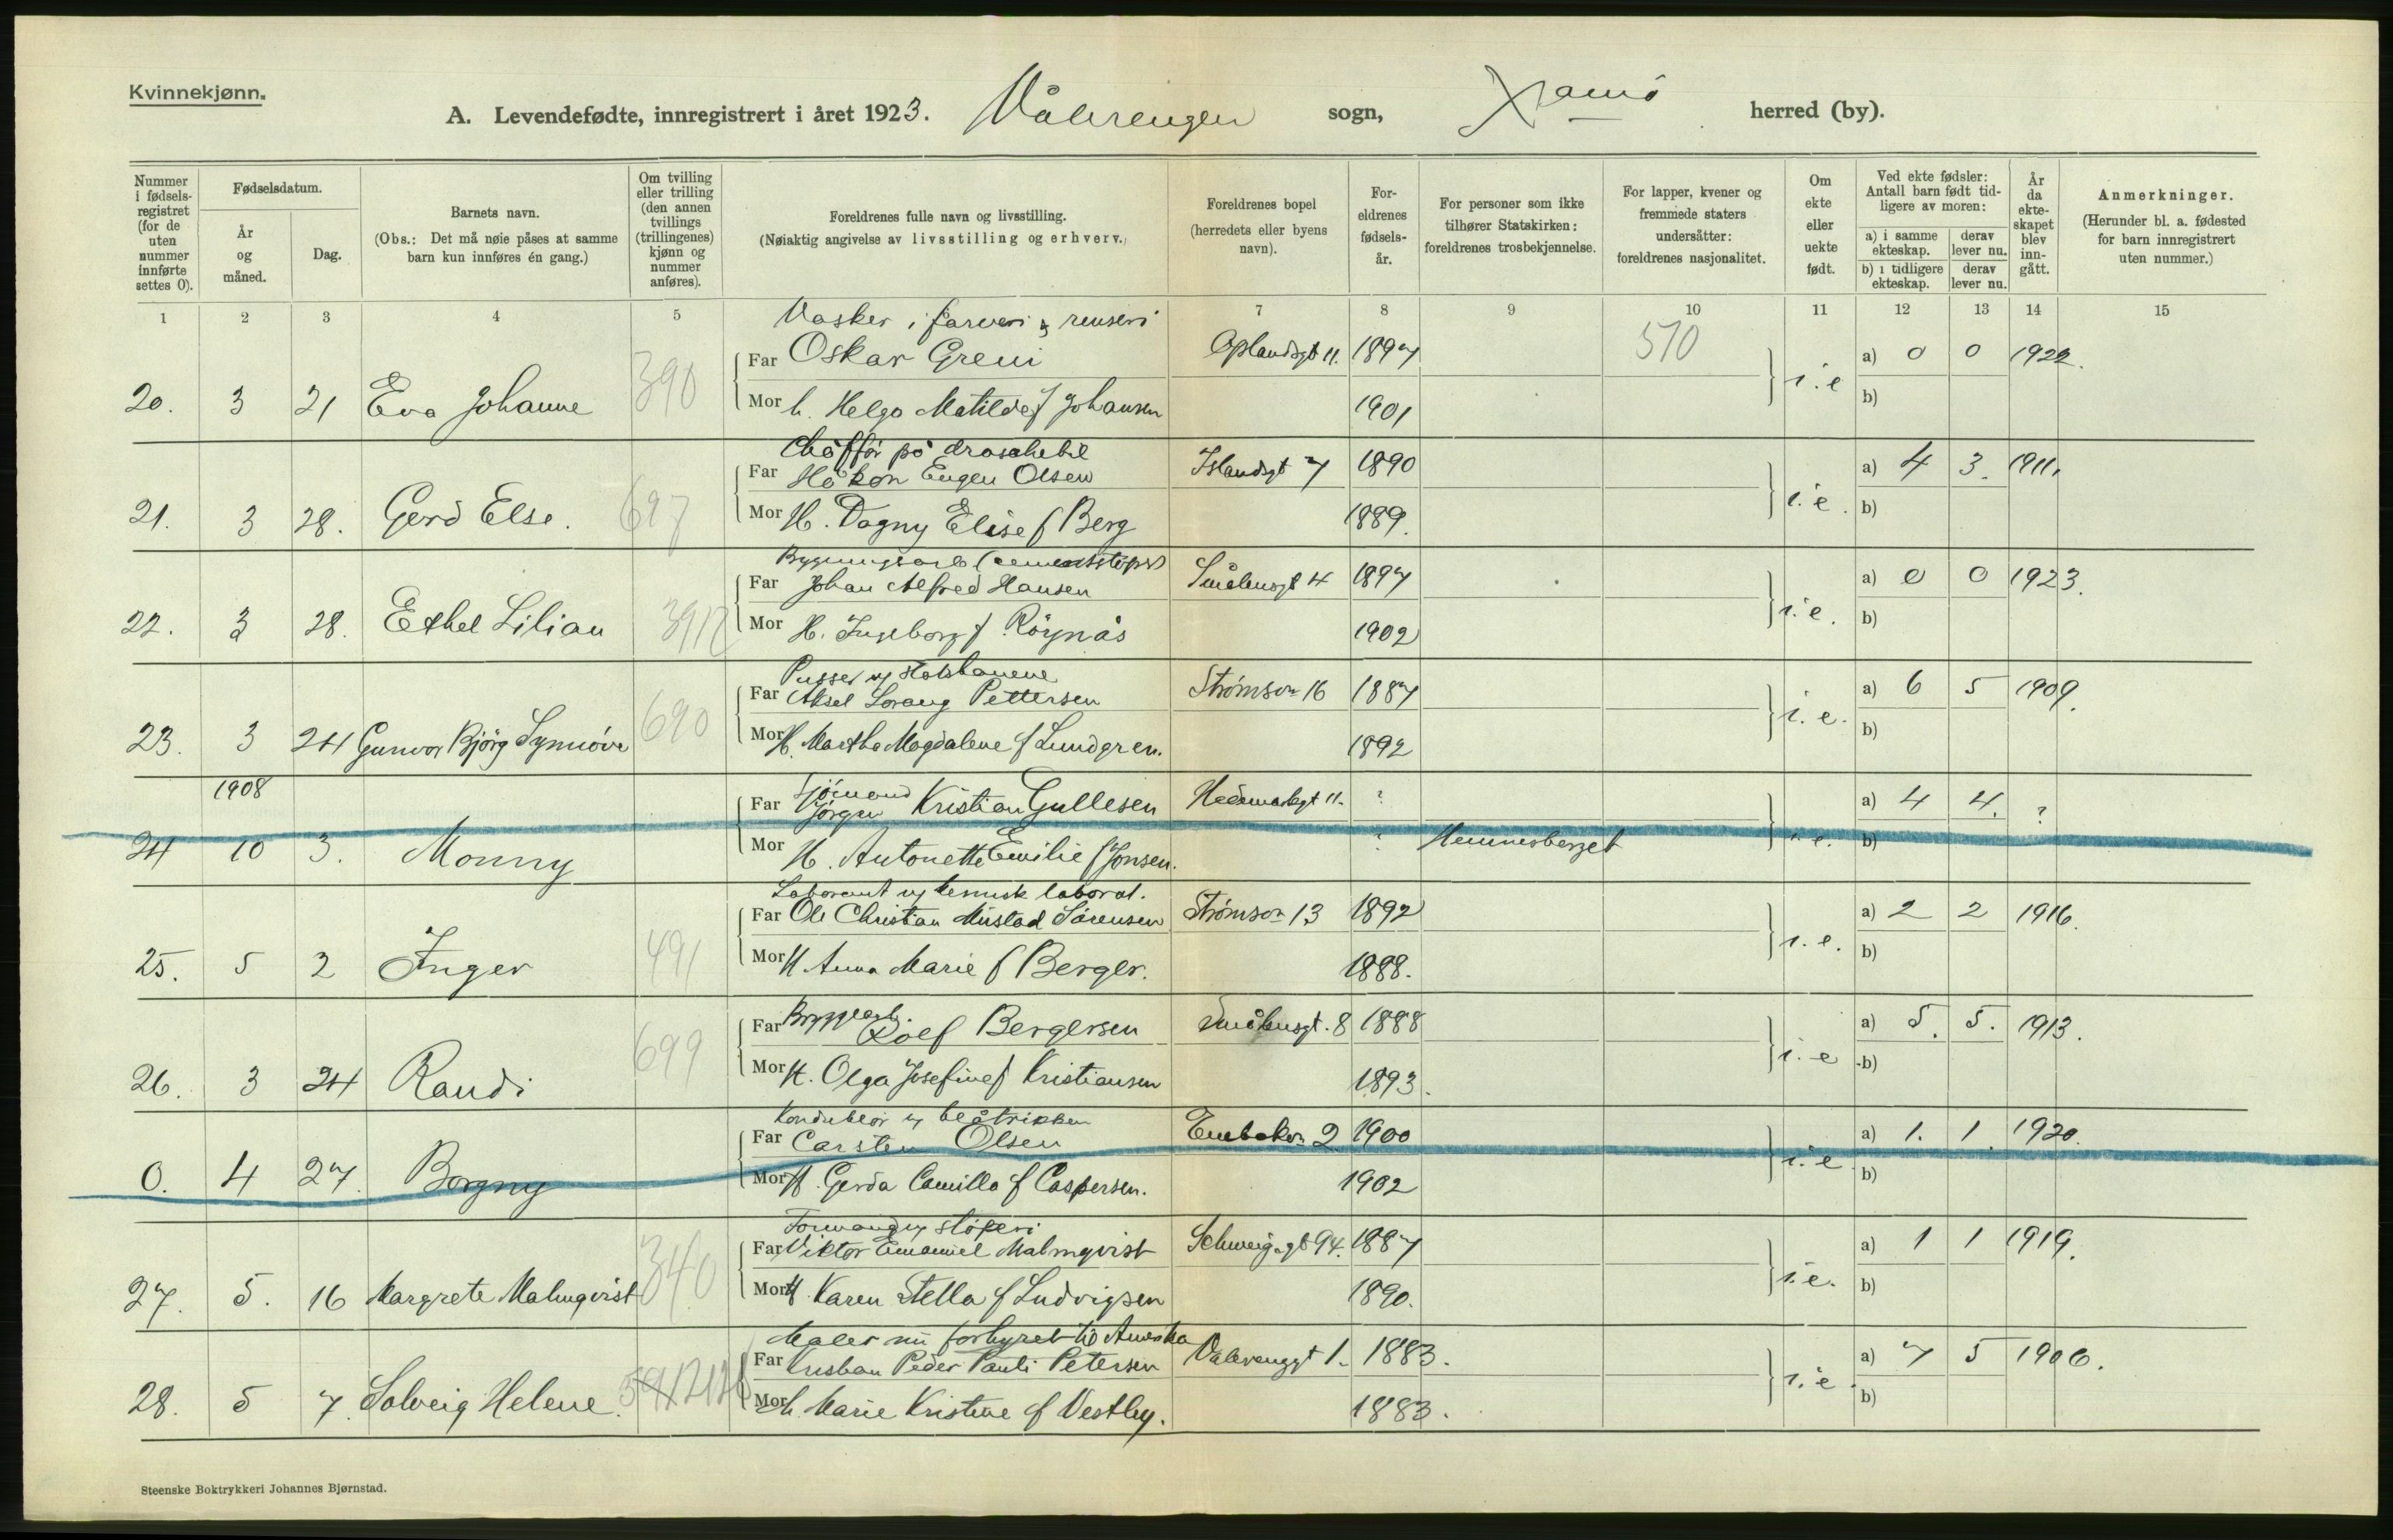 Kvinnekjønn.
A. Levendefødte, innregistrert i året 1923. Vålerengen sogn, Xania herred (by).
Nummer i fødselsregistret (for de uten nummer innførte settes 0).
Fødselsdatum.
År og måned.
Dag.
Barnets navn.
(Obs.: Det må nøie påses at samme barn kun innføres én gang.)
Om tvilling eller trilling (den annen tvillings (trillingenes) kjønn og nummer anføres).
Foreldrenes fulle navn og livsstilling.
(Nøiaktig angivelse av livsstilling og erhverv.)
Foreldrenes bopel (herredets eller byens navn).
Foreldrenes fødselsår.
For personer som ikke tilhører Statskirken: foreldrenes trosbekjennelse.
For lapper, kvener og fremmede staters undersåtter: foreldrenes nasjonalitet.
Om ekte eller uekte født.
Ved ekte fødsler: Antall barn født tidligere av moren:
a) i samme ekteskap. derav lever nu.
b) i tidligere ekteskap. derav lever nu.
År da ekteskapet blev inngått.
Anmerkninger.
(Herunder bl. a. fødested for barn innregistrert uten nummer.)
1 2 3 4 5 7 8 9 10 11 12 13 14 15
Vasker i farveri & renseri
Far Oskar Greni Oplandsgt 11. 1897 510 a) 0 0 1922.
20. 3 21 Eva Johanne 390 Mor h. Helga Matilde f Johansen 1901 i.e b)
Chåffør på droschebil
Far Håkon Eugen Olsen Islandsgt 7 1890 a) 4 3. 1911.
21. 3 28. Gerd Else. 697 Mor H. Dagny Elise f Berg 1889. i.e. b)
Bygningsarb (cementstøper)
Far Johan Alfred Hansen Smålensgt 4 1897 a) 0 0 1923.
22. 3 28. Ethel Lilian 3912 Mor H. Ingeborg f Röynås 1902 i.e. b)
Pusser v/ Statsbanene
Far Aksel Lorang Pettersen Strömsv. 16 1887 a) 6 5 1909.
23. 3 24 Gunvor Bjørg Synnøve 690 Mor H. Martha Magdalene f Lundgren. 1892 i.e. b)
1908 Sjömand
Far Jörgen Kristian Gullesen Hedemarksgt 11. ? a) 4 4. ?
24 10 3. Monny Mor H. Antonette Emilie f Jonsen. ? Hemnesberget i.e. b)
Laborant v/ kemisk laborat.
Far Ole Christian Mustad Sörensen Strömsv. 13 1892 a) 2 2 1916.
25. 5 2 Inger 491 Mor H Anna Marie f Berger. 1888. i.e. b)
Bryggearb.
Far Rolf Bergersen Smålensgt. 8 1888 a) 5. 5. 1913.
26. 3 24 Randi 699 Mor H. Olga Josefine f Kristiansen 1893. i.e b)
Konduktör v/ blåtrikken
Far Carsten Olsen Enebakv. 2 1900 a) 1. 1. 1920.
0. 4 27. Borgny Mor H. Gerda Camilla f Caspersen. 1902 i.e. b)
Formand v/ støperi
Far Viktor Emanuel Malmqvist Schweig.gt 94. 1887 a) 1 1 1919.
27. 5. 16 Margrete Malmqvist 340 Mor H Karen Stella f Ludvigsen 1890. i.e. b)
Maler nu forhyret til Amerika
Far Kristian Peder Pauli Petersen Valerenggt 1. 1883. a) 7 5 1906.
28. 5 7. Solveig Helene. Mor h. Marie Kristine f Vestby. 1883. i.e. b)
Steenske Boktrykkeri Johannes Bjørnstad.